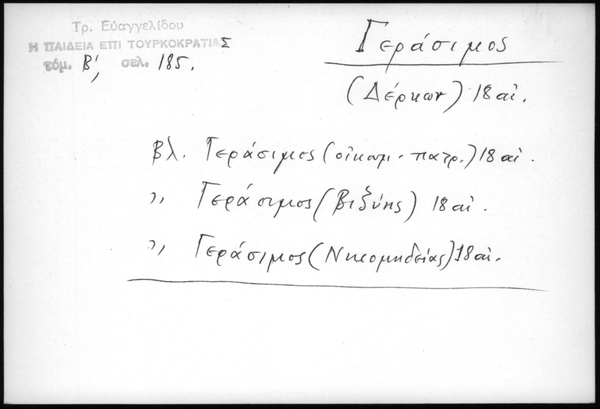 Τρ. Εὐαγγελίδου
Η ΠΑΙΔΕΙΑ ΕΠΙ ΤΟΥΡΚΟΚΡΑΤΙΑΣ
τόμ. Β', σελ. 185.
Γεράσιμος
(Δέρκων) 18 αἰ.
Βλ. Γεράσιμος (οἰκουμ. πατρ.) 18 αἰ.
" Γεράσιμος (Βιζύης) 18 αἰ.
" Γεράσιμος (Νικομηδείας) 18 αἰ.